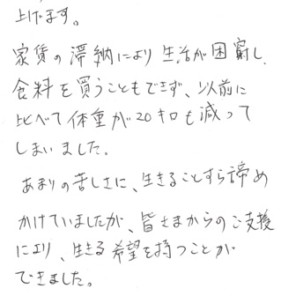 上げます。
家賃の滞納により生活が困窮し、
食料を買うこともできず、以前に
比べて体重が20キロも減って
しまいました。
あまりの苦しさに、生きることすら諦め
かけていましたが、皆さまからのご支援
により、生きる希望を持つことが
できました。